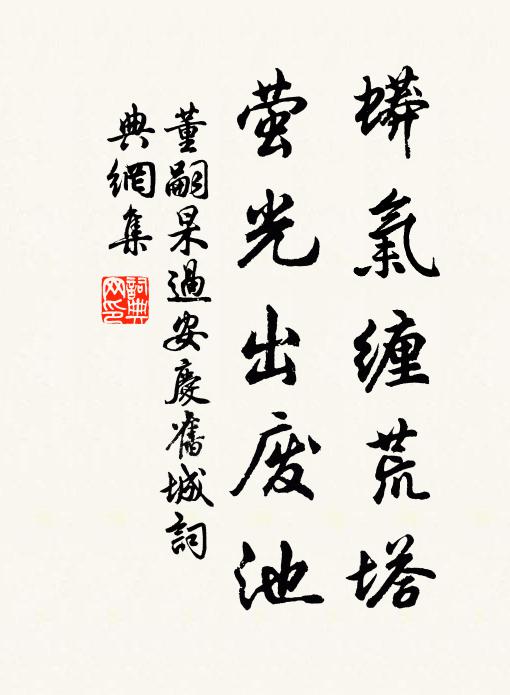 蟒氣纏荒塔
萤光出废池
董嗣杲過安慶舊城詞
典網集
詞典
网印